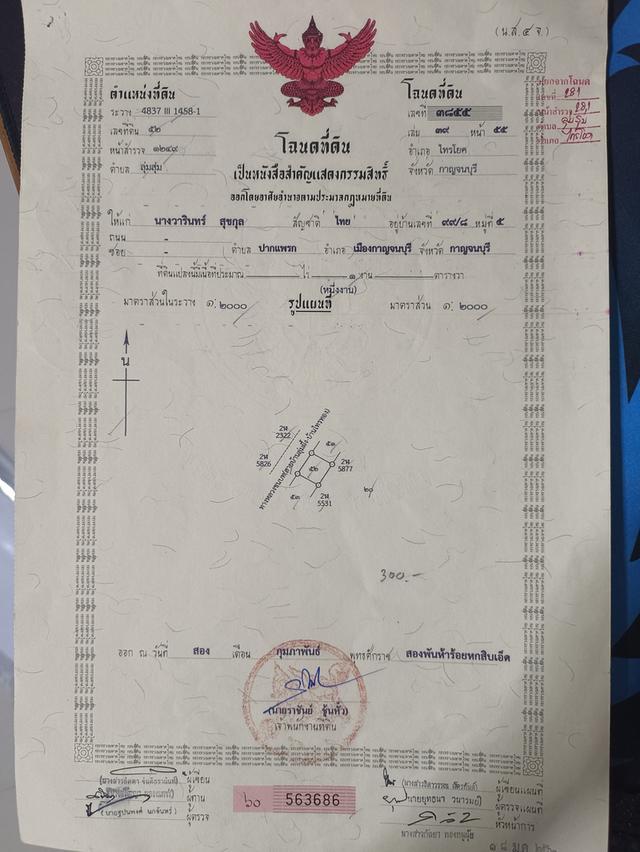 (น.ส.๔ จ.)
ตำแหน่งที่ดิน
ระวาง 4837 III 1458-1
เลขที่ดิน ๕๒
หน้าสำรวจ ๑๒๔๙
ตำบล ลุ่มสุ่ม
โฉนดที่ดิน
เลขที่ ๓๘๕๕
เล่ม ๓๙ หน้า ๕๕
อำเภอ ไทรโยค
จังหวัด กาญจนบุรี
โฉนดที่ดิน
เป็นหนังสือสำคัญแสดงกรรมสิทธิ์
ออกโดยอาศัยอำนาจตามประมวลกฎหมายที่ดิน
ให้แก่ นางวารินทร์ สุขกุล สัญชาติ ไทย อยู่บ้านเลขที่ ๙๙/๘ หมู่ที่ ๕
ถนน -
ซอย - ตำบล ปากแพรก อำเภอ เมืองกาญจนบุรี จังหวัด กาญจนบุรี
ที่ดินแปลงนี้มีเนื้อที่ประมาณ ไร่ ๑ งาน ตารางวา
(หนึ่งงาน)
มาตราส่วนในระวาง ๑: ๒๐๐๐ รูปแผนที่ มาตราส่วน ๑: ๒๐๐๐
น
2น
2322
2น
5826
๕๑
๕๒
2น
5877
๕๓
2น
5531
๒๐
300.-
ออก ณ วันที่ สอง เดือน กุมภาพันธ์ พุทธศักราช สองพันห้าร้อยหกสิบเอ็ด
(นายราชันย์ ซุ้นหั้ว)
เจ้าพนักงานที่ดิน
ผู้เขียน
ผู้ทาน
ผู้ตรวจ
๖๐ 563686
ผู้เขียนแผนที่
ผู้ตรวจแผนที่
หัวหน้าการ